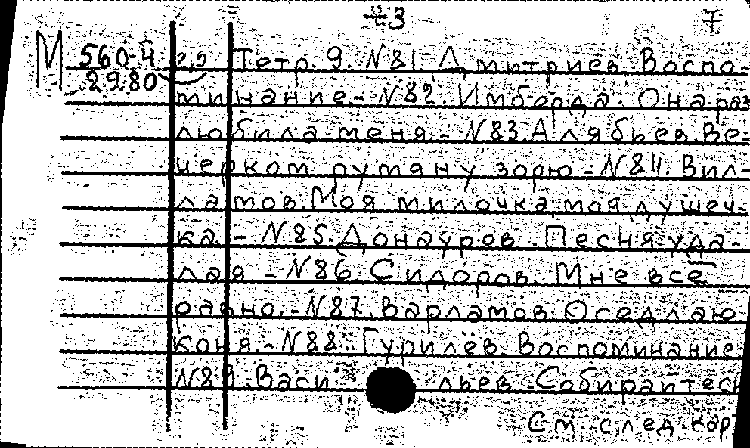 # 3 7
М 560-4 29 Тетр. 9. №81. Дмитриев. Воспо-
2980 минание. - №82. Имберда. Она раз
любила меня. - №83. Алябьев. Ве-
черком румяну зорю. - №84. Вил-
ламов. Моя милочка, моя душеч-
ка. - №85. Донауров. Песня уда-
лая. - №86. Сидоров. Мне всё
равно. - №87. Варламов. Оседлаю
коня. - №88. Гурилёв. Воспоминание.
№89. Васильев. Собирайтесь
См. след. кар